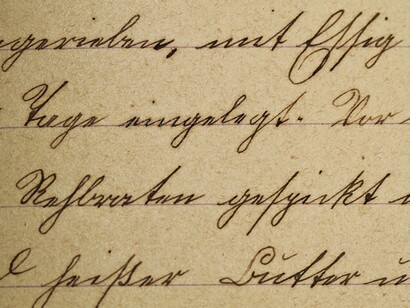 gerieben, mit Essig
Tage eingelegt. Vor
Rehbraten gespickt
heißer Butter u